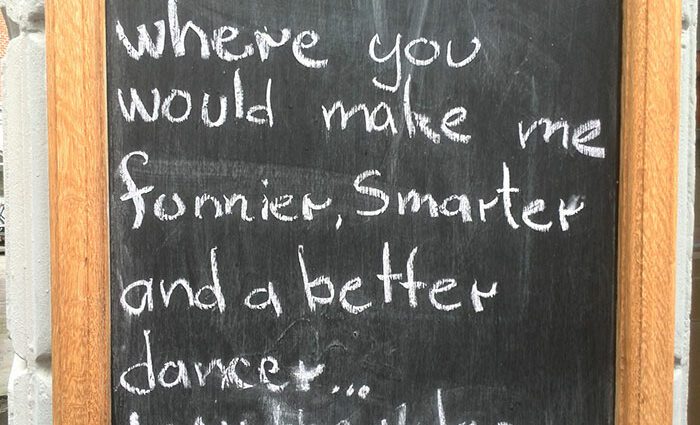 where you
would make me
funnier, Smarter
and a better
dancer...